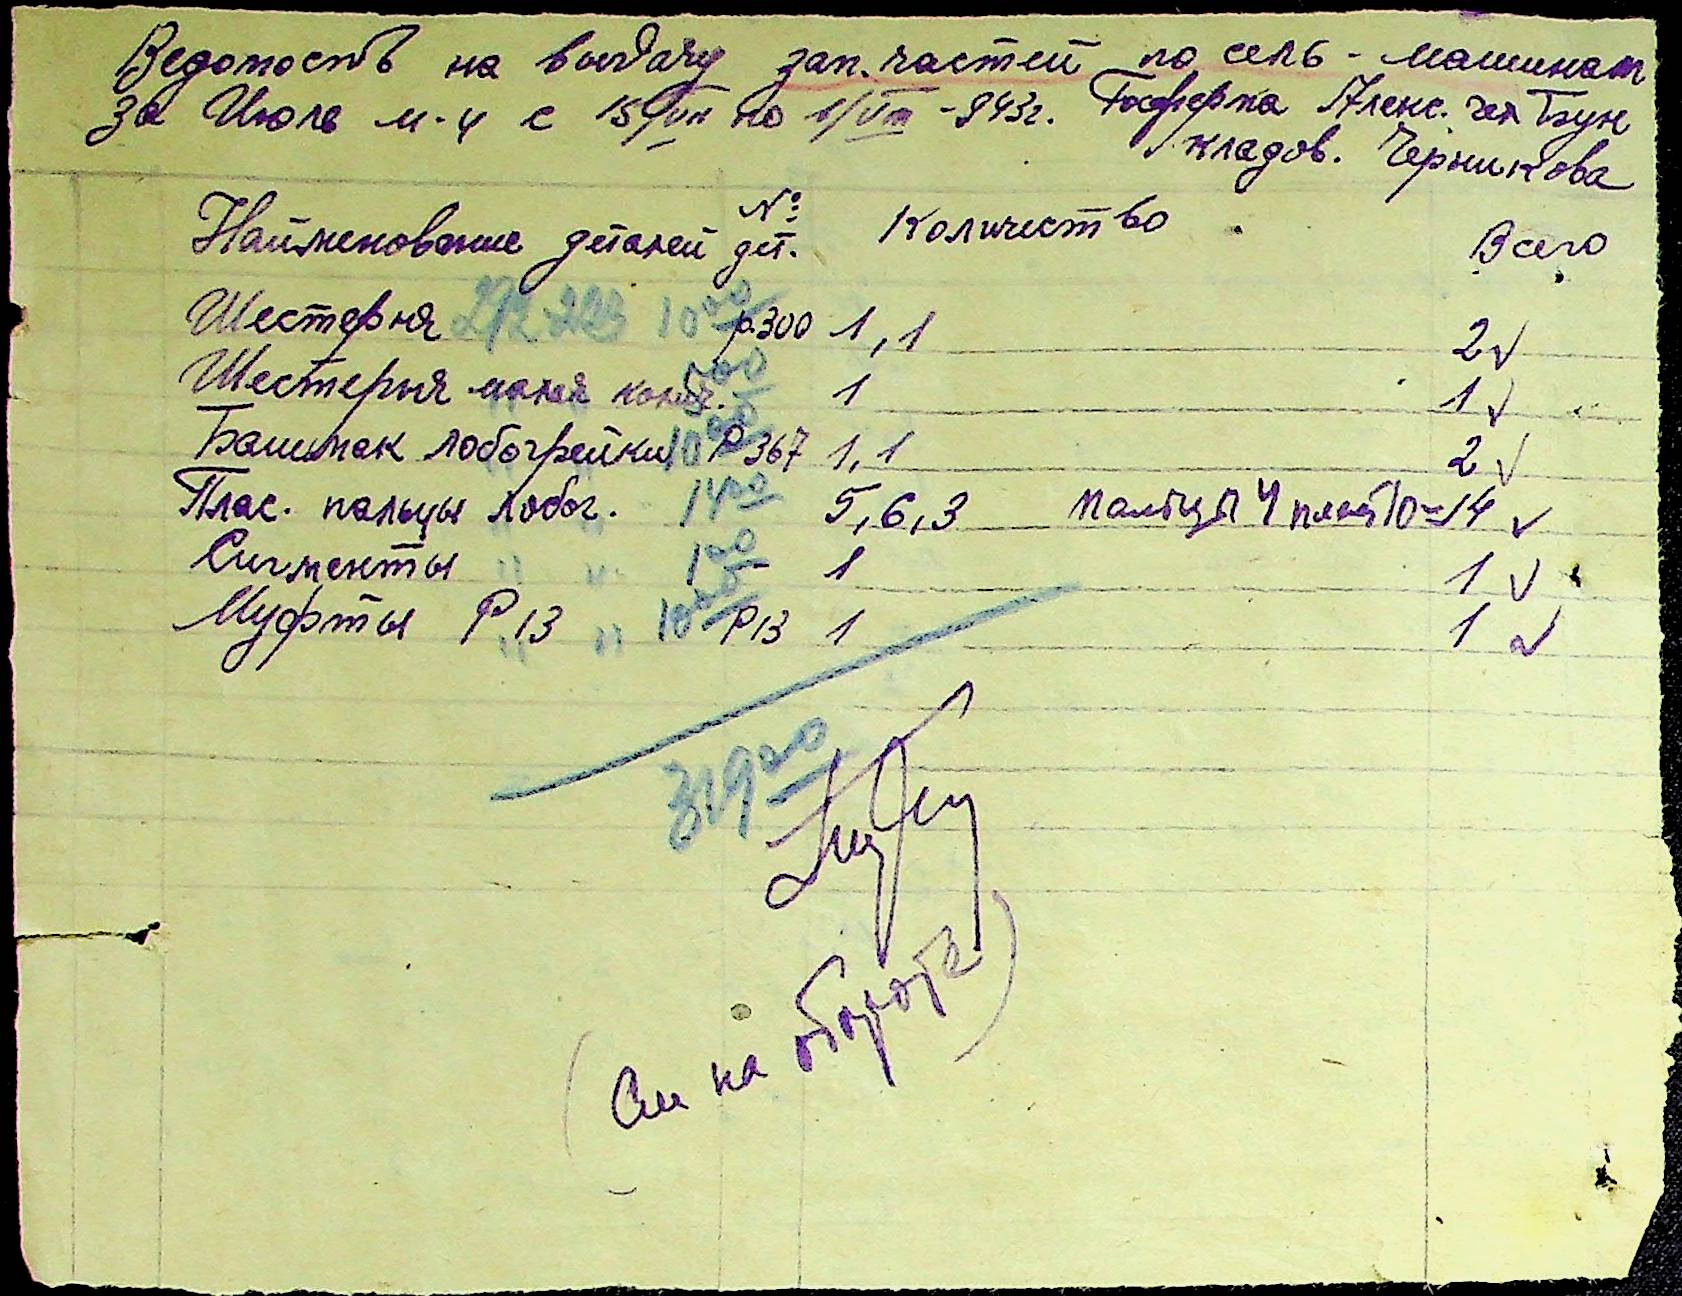 Ведомость на выдачу зап. частей по сель - машинам
За Июль м-ц с 15/VII по 1/VIII - 943г. Госферма Алекс.
кладов. Черникова
Наименование деталей № дет. Количество Всего
Шестерня 1000 Р.300 1, 1 2 ✓
Шестерня малая 1 1 ✓
Башмак лобогрейки Р 367 1, 1 2 ✓
Плас. пальцы лобог. 1400 5, 6, 3 пальцы 4 пласт 10 = 14 ✓
Сигменты " " 100 1 1 ✓
Муфты Р 13 " " Р13 1 1 ✓
31900
(См на обороте)